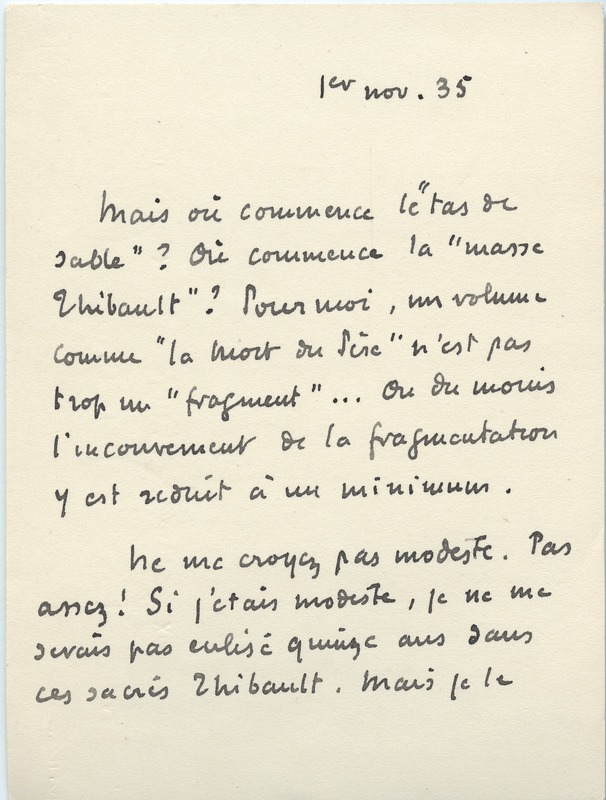 1er nov. 35
Mais où commence le "tas de
sable"? Où commence la "masse
Thibault"? Pour moi, un volume
comme "la Mort du Père" n'est pas
trop un "fragment"... Ou du moins
l'inconvenient de la fragmentation
y est reduit à un minimum.
Ne me croyez pas modeste. Pas
assez! Si j'étais modeste, je ne me
serais pas enlisé quinze ans dans
ces sacrés Thibault. Mais je le